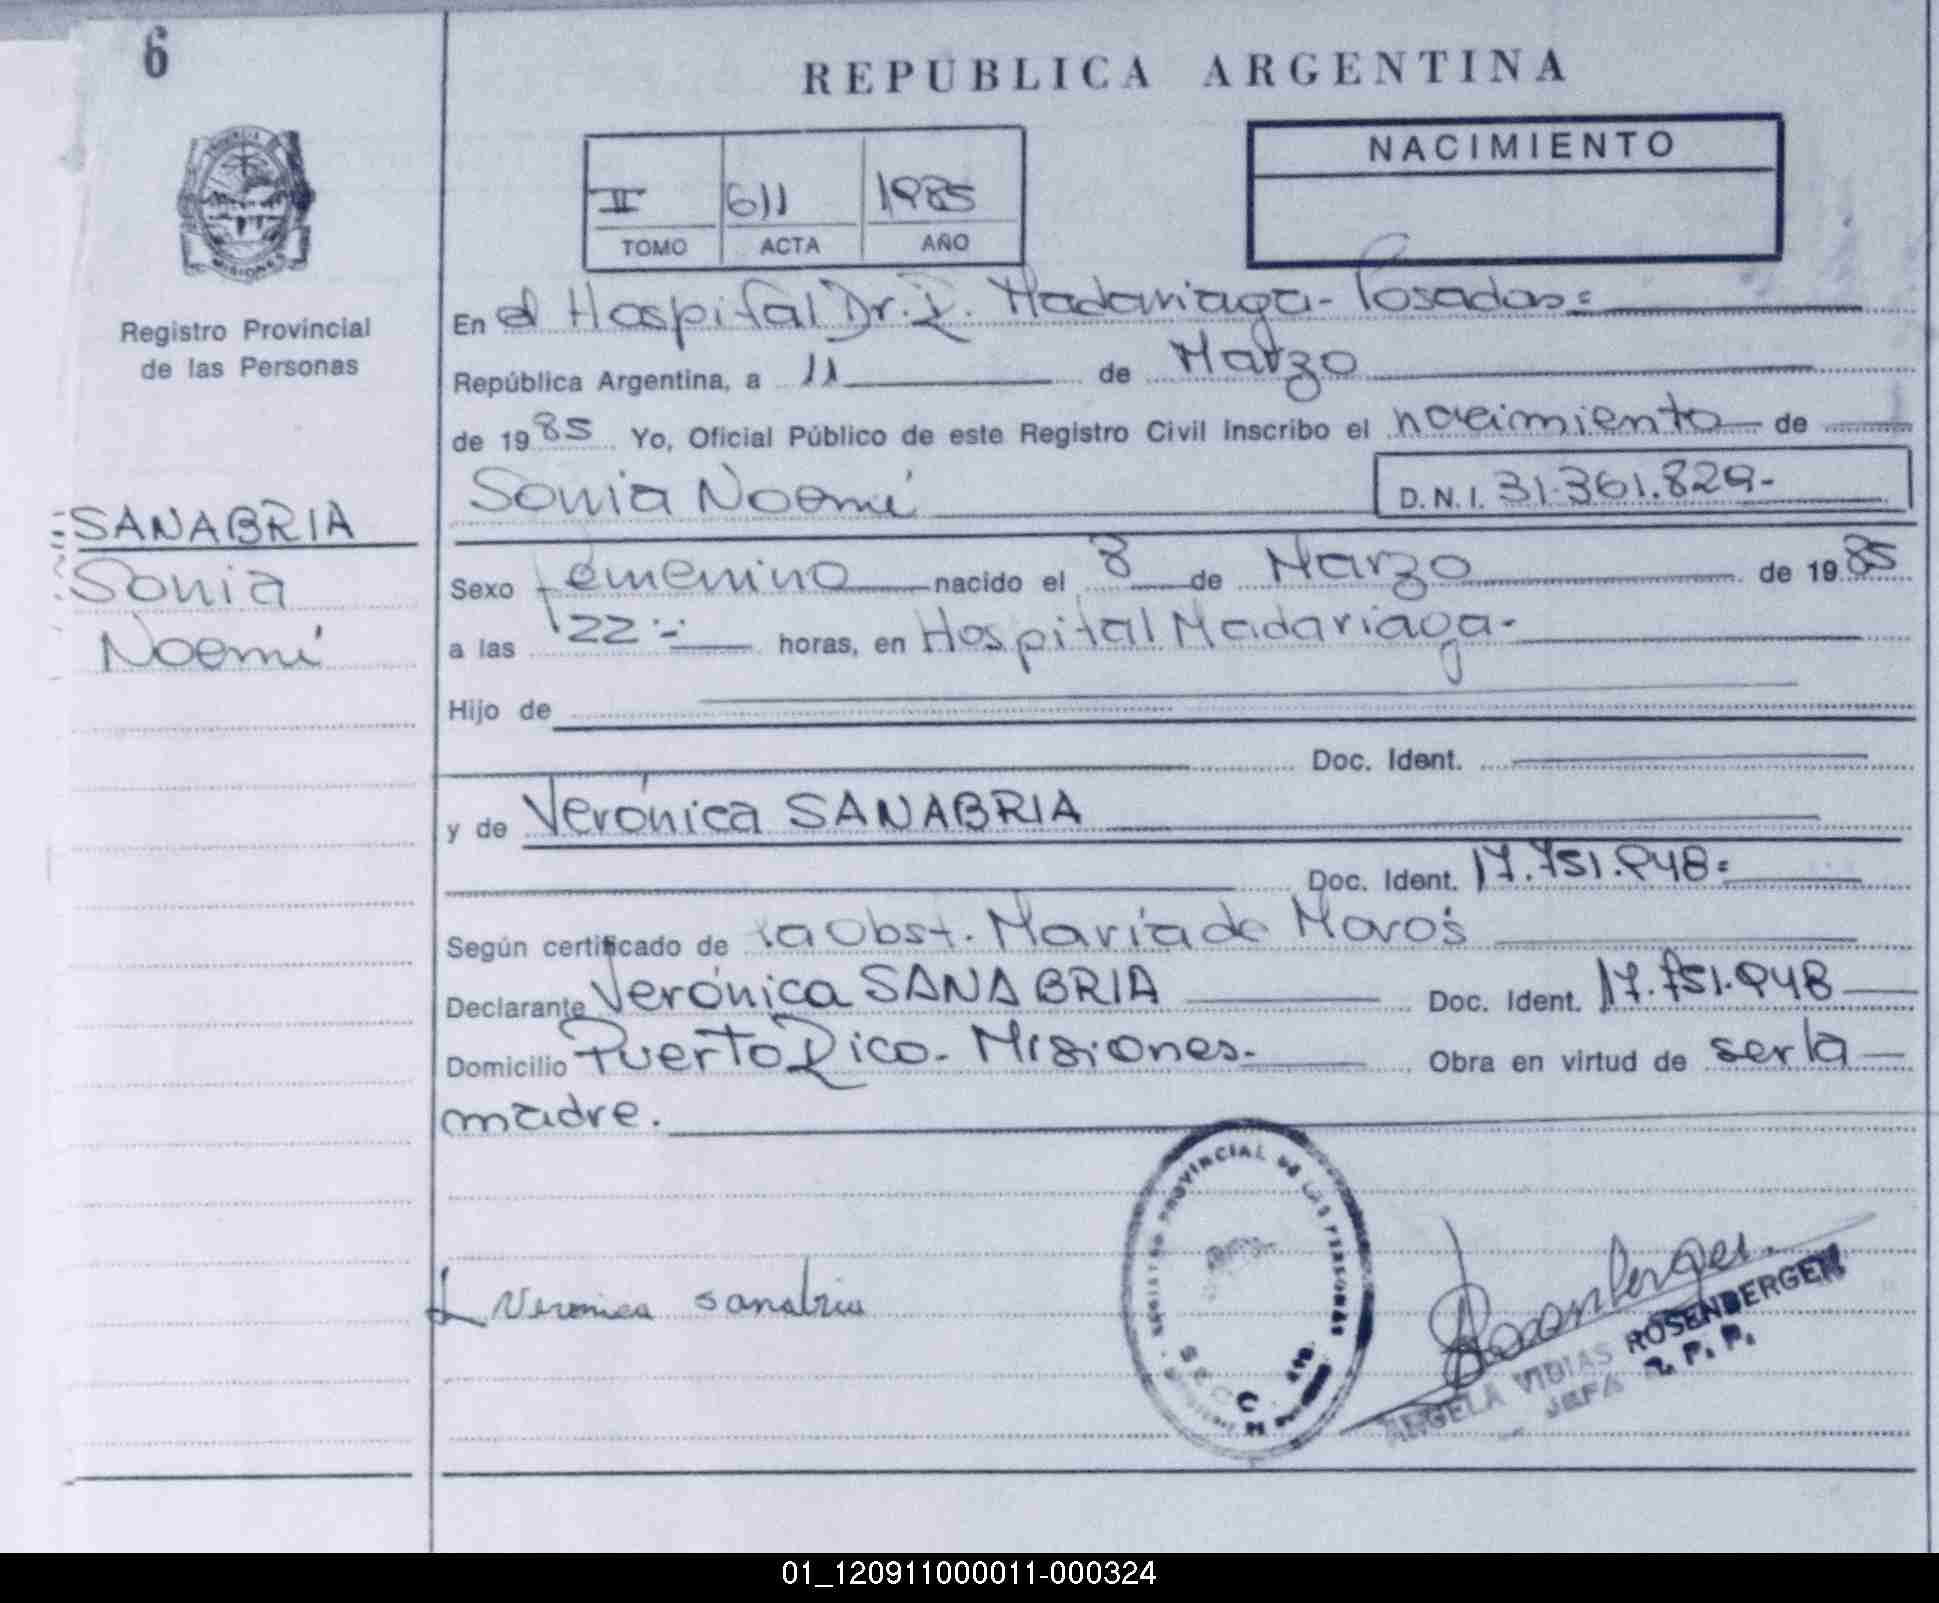 6
REPUBLICA ARGENTINA
NACIMIENTO
II 611 1985
TOMO ACTA AÑO
MISIONES
Registro Provincial
de las Personas
SANABRIA
Sonia
Noemí
En el Hospital Dr. R. Madariaga - Posadas =
República Argentina, a 11 de Marzo
de 1985 Yo, Oficial Público de este Registro Civil inscribo el nacimiento de
Sonia Noemí D.N.I. 31.361.829-
Sexo femenino nacido el 8 de Marzo de 1985
a las 22 horas, en Hospital Madariaga-
Hijo de
Doc. Ident.
y de Verónica SANABRIA
Doc. Ident. 17.751.948=
Según certificado de la Obst. María de
Declarante Verónica SANABRIA Doc. Ident. 17.751.948
Domicilio Puerto Rico - Misiones- Obra en virtud de ser la
madre.
REGISTRO PROVINCIAL DE LAS PERSONAS
Veronica Sanabria
Rosenberger
ANGELA VIDIAS ROSENBERGER
JEFA R. P. P.
01_120911000011-000324